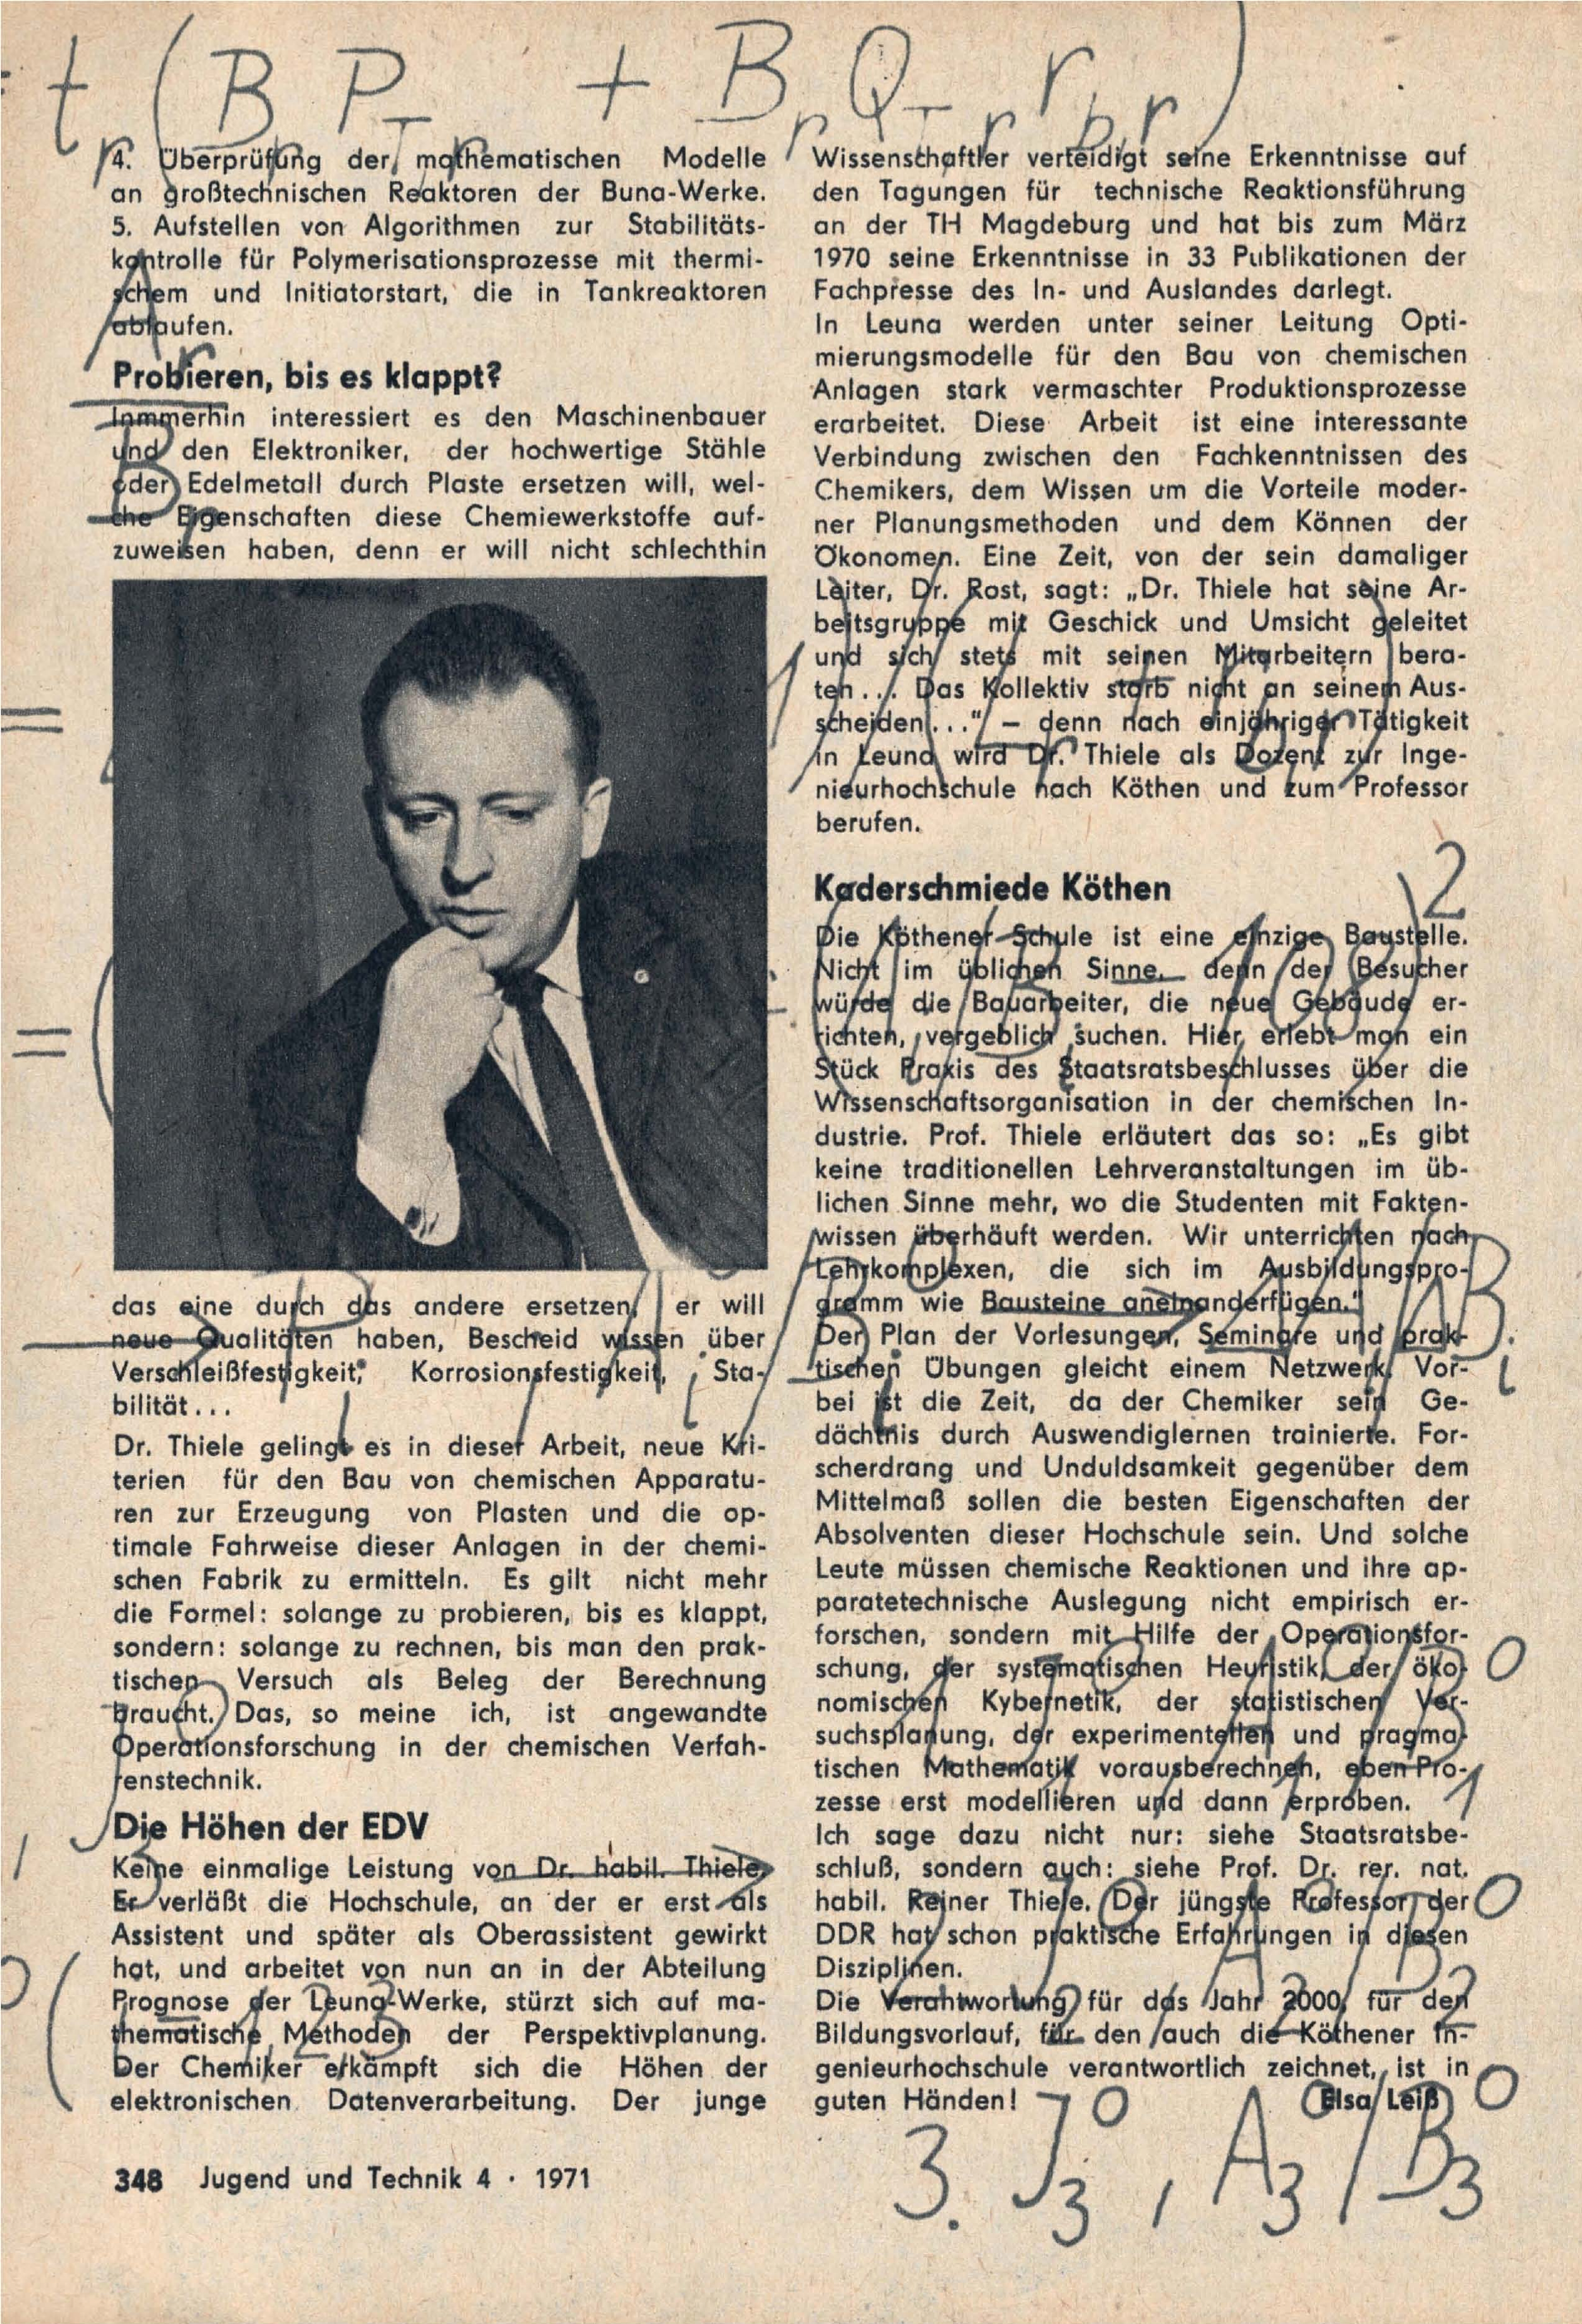 t r ( B r P T r + B r Q T r r b,r )
4. Überprüfung der mathematischen Modelle
an großtechnischen Reaktoren der Buna-Werke.
5. Aufstellen von Algorithmen zur Stabilitäts-
kontrolle für Polymerisationsprozesse mit thermi-
schem und Initiatorstart, die in Tankreaktoren
ablaufen.
Probieren, bis es klappt?
Inmmerhin interessiert es den Maschinenbauer
und den Elektroniker, der hochwertige Stähle
oder Edelmetall durch Plaste ersetzen will, wel-
che Eigenschaften diese Chemiewerkstoffe auf-
zuweisen haben, denn er will nicht schlechthin
das eine durch das andere ersetzen, er will
neue Qualitäten haben, Bescheid wissen über
Verschleißfestigkeit, Korrosionsfestigkeit, Sta-
bilität...
Dr. Thiele gelingt es in dieser Arbeit, neue Kri-
terien für den Bau von chemischen Apparatu-
ren zur Erzeugung von Plasten und die op-
timale Fahrweise dieser Anlagen in der chemi-
schen Fabrik zu ermitteln. Es gilt nicht mehr
die Formel: solange zu probieren, bis es klappt,
sondern: solange zu rechnen, bis man den prak-
tischen Versuch als Beleg der Berechnung
braucht. Das, so meine ich, ist angewandte
Operationsforschung in der chemischen Verfah-
renstechnik.
Die Höhen der EDV
Keine einmalige Leistung von Dr. habil. Thiele.
Er verläßt die Hochschule, an der er erst als
Assistent und später als Oberassistent gewirkt
hat, und arbeitet von nun an in der Abteilung
Prognose der Leuna-Werke, stürzt sich auf ma-
thematische Methoden der Perspektivplanung.
Der Chemiker erkämpft sich die Höhen der
elektronischen Datenverarbeitung. Der junge
Wissenschaftler verteidigt seine Erkenntnisse auf
den Tagungen für technische Reaktionsführung
an der TH Magdeburg und hat bis zum März
1970 seine Erkenntnisse in 33 Publikationen der
Fachpresse des In- und Auslandes darlegt.
In Leuna werden unter seiner Leitung Opti-
mierungsmodelle für den Bau von chemischen
Anlagen stark vermaschter Produktionsprozesse
erarbeitet. Diese Arbeit ist eine interessante
Verbindung zwischen den Fachkenntnissen des
Chemikers, dem Wissen um die Vorteile moder-
ner Planungsmethoden und dem Können der
Ökonomen. Eine Zeit, von der sein damaliger
Leiter, Dr. Rost, sagt: „Dr. Thiele hat seine Ar-
beitsgruppe mit Geschick und Umsicht geleitet
und sich stets mit seinen Mitarbeitern bera-
ten... Das Kollektiv starb nicht an seinem Aus-
scheiden..." – denn nach einjähriger Tätigkeit
in Leuna wird Dr. Thiele als Dozent zur Inge-
nieurhochschule nach Köthen und zum Professor
berufen.
Kaderschmiede Köthen
Die Köthener Schule ist eine einzige Baustelle.
Nicht im üblichen Sinne, denn der Besucher
würde die Bauarbeiter, die neue Gebäude er-
richten, vergeblich suchen. Hier erlebt man ein
Stück Praxis des Staatsratsbeschlusses über die
Wissenschaftsorganisation in der chemischen In-
dustrie. Prof. Thiele erläutert das so: „Es gibt
keine traditionellen Lehrveranstaltungen im üb-
lichen Sinne mehr, wo die Studenten mit Fakten-
wissen überhäuft werden. Wir unterrichten nach
Lehrkomplexen, die sich im Ausbildungspro-
gramm wie Bausteine aneinanderfügen."
Der Plan der Vorlesungen, Seminare und prak-
tischen Übungen gleicht einem Netzwerk. Vor-
bei ist die Zeit, da der Chemiker sein Ge-
dächtnis durch Auswendiglernen trainierte. For-
scherdrang und Unduldsamkeit gegenüber dem
Mittelmaß sollen die besten Eigenschaften der
Absolventen dieser Hochschule sein. Und solche
Leute müssen chemische Reaktionen und ihre ap-
paratetechnische Auslegung nicht empirisch er-
forschen, sondern mit Hilfe der Operationsfor-
schung, der systematischen Heuristik, der öko-
nomischen Kybernetik, der statistischen Ver-
suchsplanung, der experimentellen und pragma-
tischen Mathematik vorausberechnen, eben Pro-
zesse erst modellieren und dann erproben.
Ich sage dazu nicht nur: siehe Staatsratsbe-
schluß, sondern auch: siehe Prof. Dr. rer. nat.
habil. Reiner Thiele. Der jüngste Professor der
DDR hat schon praktische Erfahrungen in diesen
Disziplinen.
Die Verantwortung für das Jahr 2000, für den
Bildungsvorlauf, für den auch die Köthener In-
genieurhochschule verantwortlich zeichnet, ist in
guten Händen! Elsa Leiß
3. J3 0, A3 0/B3 0
348 Jugend und Technik 4 · 1971